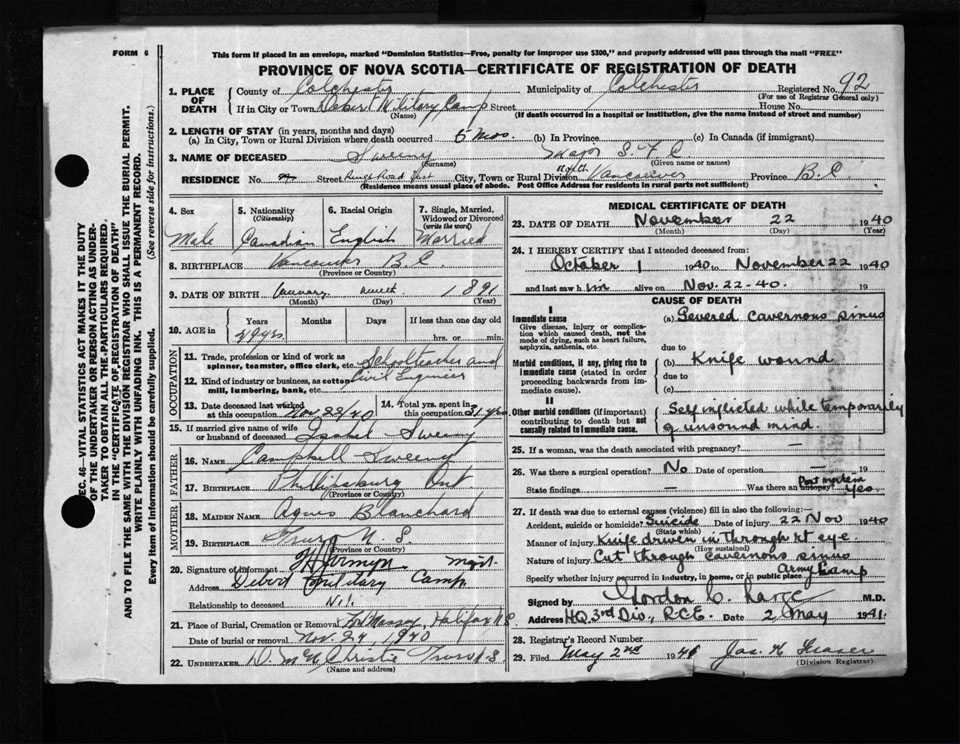 FORM 6
This form if placed in an envelope, marked "Dominion Statistics—Free, penalty for improper use $300," and properly addressed will pass through the mail "FREE"
PROVINCE OF NOVA SCOTIA—CERTIFICATE OF REGISTRATION OF DEATH
1. PLACE OF DEATH County of Colchester Municipality of Colchester Registered No. 92
(For use of Registrar General only)
If in City or Town Debert Military Camp Street House No.
(Name) (If death occurred in a hospital or institution, give its name instead of street and number)
2. LENGTH OF STAY (in years, months and days)
(a) In City, Town or Rural Division where death occurred 5 mos. (b) In Province (c) In Canada (if immigrant)
3. NAME OF DECEASED Sweeny Major S. F. C.
(Surname) (Given name or names)
RESIDENCE No. Street Road City, Town or Rural Division North Vancouver Province B.C.
(Residence means usual place of abode. Post Office Address for residents in rural parts not sufficient)
4. Sex Male
5. Nationality (Citizenship) Canadian
6. Racial Origin English
7. Single, Married, Widowed or Divorced (write the word) Married
8. BIRTHPLACE Vancouver B.C.
(Province or Country)
9. DATE OF BIRTH January 1891
(Month) (Day) (Year)
10. AGE in Years Months Days If less than one day old
49 yrs. hrs. or min.
OCCUPATION
11. Trade, profession or kind of work as spinner, teamster, office clerk, etc. Schoolteacher and
12. Kind of industry or business, as cotton mill, lumbering, bank, etc. Civil Engineer
13. Date deceased last worked at this occupation Nov 22/40 14. Total yrs. spent in this occupation 31 yrs
15. If married give name of wife or husband of deceased Isabel Sweeny
FATHER
16. NAME Campbell Sweeny
17. BIRTHPLACE Phillipsburg Ont
(Province or Country)
MOTHER
18. MAIDEN NAME Agnes Blanchard
19. BIRTHPLACE Truro N.S.
(Province or Country)
20. Signature of informant
Address Debert Military Camp
Relationship to deceased Nil
21. Place of Burial, Cremation or Removal Ft Massey, Halifax N.S.
Date of burial or removal Nov. 24, 1940
22. UNDERTAKER D. McN Christie Truro N.S.
(Name and address)
MEDICAL CERTIFICATE OF DEATH
23. DATE OF DEATH November 22 1940
(Month) (Day) (Year)
24. I HEREBY CERTIFY that I attended deceased from:
October 1 1940 to November 22 1940
and last saw him alive on Nov. 22-40.
CAUSE OF DEATH
I
Immediate cause (a) Severed cavernous sinus
Give disease, injury or complication which caused death, not the mode of dying, such as heart failure, asphyxia, asthenia, etc.
due to
Morbid conditions, if any, giving rise to immediate cause (stated in order proceeding backwards from immediate cause).
(b) Knife wound
due to
(c)
II
Other morbid conditions (if important) contributing to death but not causally related to immediate cause.
Self inflicted while temporarily of unsound mind.
25. If a woman, was the death associated with pregnancy? —
26. Was there a surgical operation? No Date of operation — 19
State findings — Was there an autopsy? Post mortem Yes
27. If death was due to external causes (violence) fill in also the following:
Accident, suicide or homicide? Suicide Date of injury 22 Nov 1940
(State which)
Manner of injury Knife driven in through rt eye.
(How sustained)
Nature of injury Cut through cavernous sinus
Specify whether injury occurred in industry, in home, or in public place Army Camp
Signed by Gordon C. M.D.
Address HQ 3rd Div., R.C.E. Date 2 May 1941.
28. Registrar's Record Number
29. Filed May 2nd 1941 Jas. H. Fraser
(Division Registrar)
SEC. 46—VITAL STATISTICS ACT MAKES IT THE DUTY
OF THE UNDERTAKER OR PERSON ACTING AS UNDERTAKER TO OBTAIN ALL THE PARTICULARS REQUIRED
IN THE "CERTIFICATE OF REGISTRATION OF DEATH"
AND TO FILE THE SAME WITH THE DIVISION REGISTRAR WHO SHALL ISSUE THE BURIAL PERMIT.
WRITE PLAINLY WITH UNFADING INK. THIS IS A PERMANENT RECORD.
Every item of information should be carefully supplied. (See reverse side for instructions.)